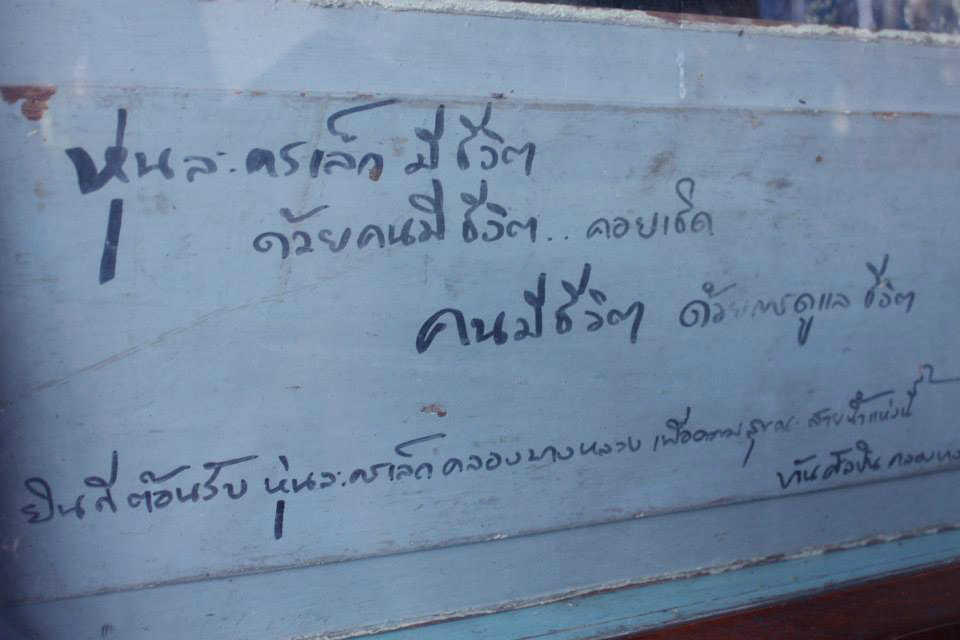 หุ่นละครเล็ก มีชีวิต
ด้วยคนมีชีวิต.. คอยเชิด
คนมีชีวิต ด้วยการดูแล ชีวิต
ยินดีต้อนรับ หุ่นละครเล็ก คลองบางหลวง เพื่อความสุข ณ สายน้ำแห่งนี้
บ้านศิลปิน คลองบาง